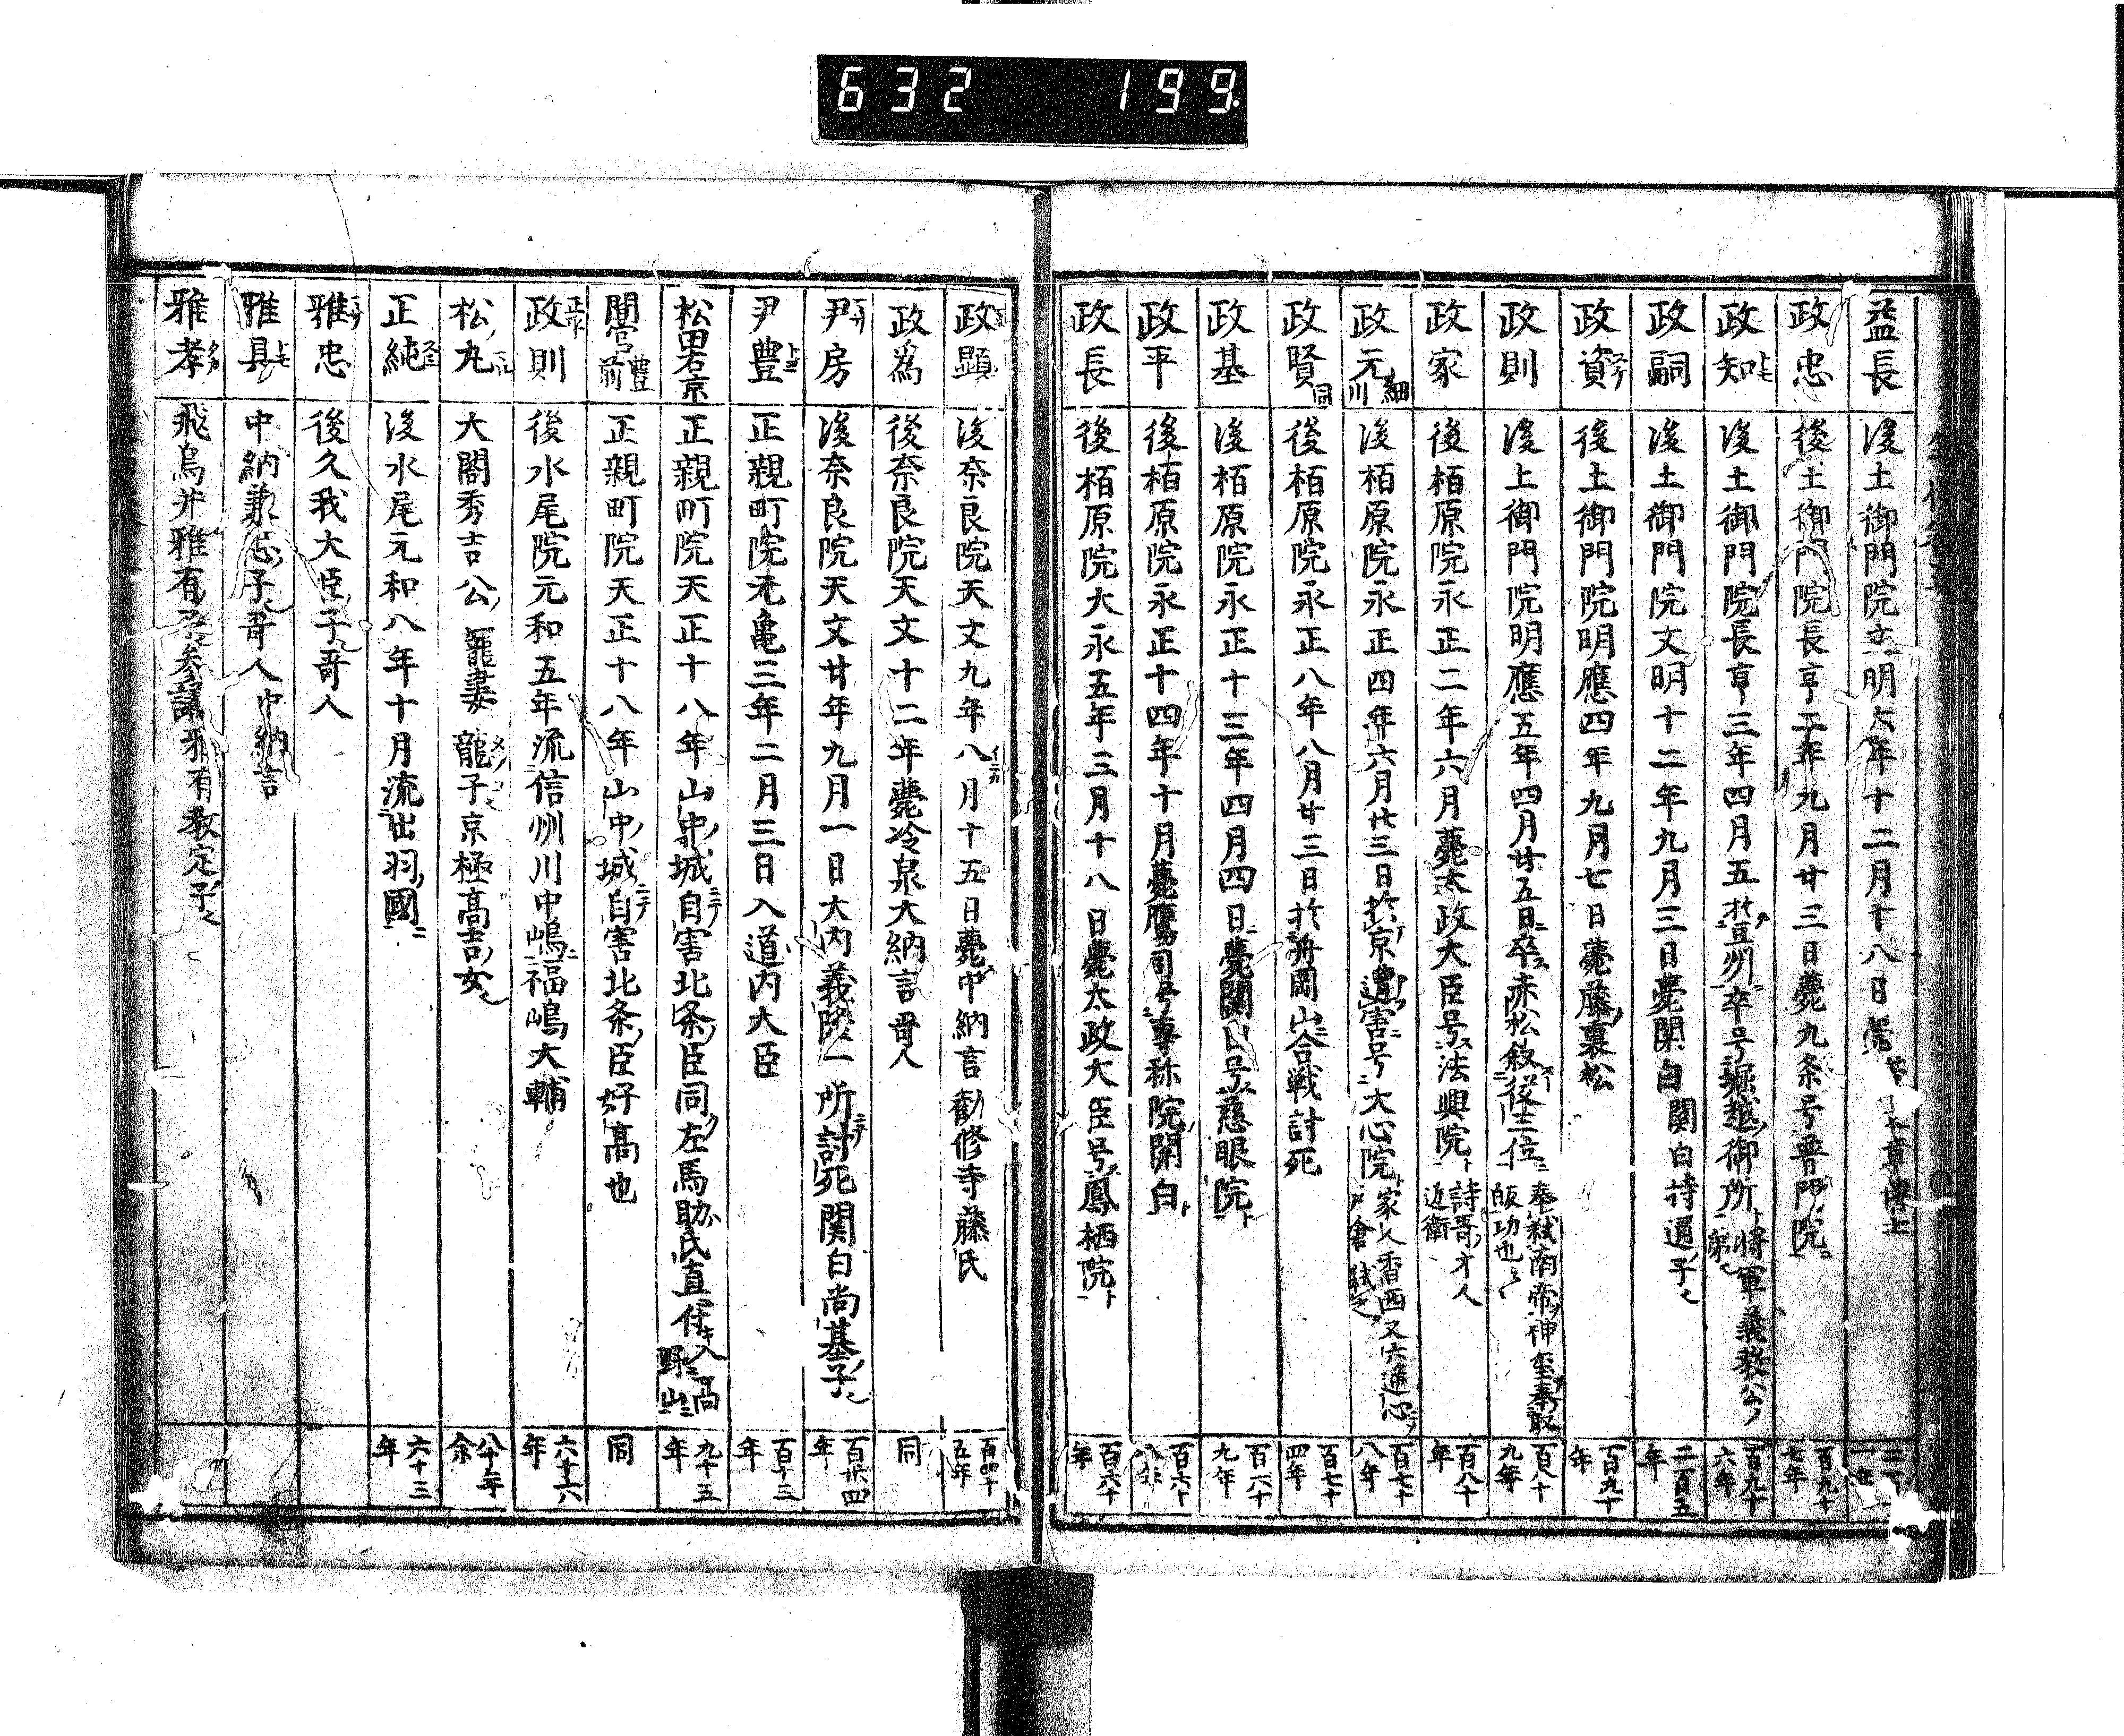 632 199
益長 後土御門院文明六年十二月十八日 博士
政忠 後土御門院長享二年九月廿三日薨九条号普門院ニ 百九十七年
政知トモ 後土御門院長享三年四月五於豆州卒号堀越御所 将軍義教公ノ弟 百九十六年
政嗣 後土御門院文明十二年九月三日薨関白 関白持通ノ子 二百五年
政資スケ 後土御門院明應四年九月七日薨藤裏松 百九十年
政則 後土御門院明應五年四月廿五日卒赤松叙従三位 奉弑南帝神璽奉取皈功也 百八十九年
政家 後柏原院永正二年六月薨太政大臣号法興院ト 詩哥才人近衛 百八十年
政元細川 後柏原院永正四年六月廿三日於京遭害号大心院ト 家人香西又六 百七十八年
政賢同 後柏原院永正八年八月廿三日於舟岡山合戦討死 百七十四年
政基 後柏原院永正十三年四月四日薨関白号慈眼院ト 百六十九年
政平 後柏原院永正十四年十月薨鷹司号事称院関白 百六十八年
政長 後柏原院大永五年三月十八日薨太政大臣号鳳栖院ト 百六十年
政顕 後奈良院天文九年八月十五日薨中納言勧修寺藤氏 百四十五年
政為 後奈良院天文十二年薨冷泉大納言哥人 同
尹房 後奈良院天文廿年九月一日大内義隆一所ニテ討死関白尚基ノ子 百卅四年
尹豊トヨ 正親町院元亀三年二月三日入道内大臣 百十三年
松田右京 正親町院天正十八年山中ノ城ニテ自害北条ノ臣同左馬助氏直任 入高野山ニ 九十五年
間宮豊前 正親町院天正十八年山中ノ城ニテ自害北条ノ臣好高也 同
政則 後水尾院元和五年流信州川中嶋ニ福嶋大輔 六十六年
松丸 大閤秀吉公ノ寵妻龍子京極高吉ノ女 八十年余
正純スミ 後水尾元和八年十月流出羽ノ國ニ 六十三年
雅忠 後久我大臣ノ子哥人
雅具トモ 中納兼忠ノ子哥人中納言
雅孝タカ 飛鳥井雅有 参議雅有教定ノ子